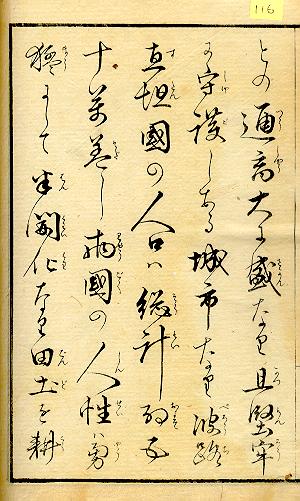 116
との通商大に盛なり且堅牢
に守護しある城市なり彼路
直坦國の人口ハ総計約五
十萬蓋し両國の人性ハ勇
猛にして半開化なり田土を耕